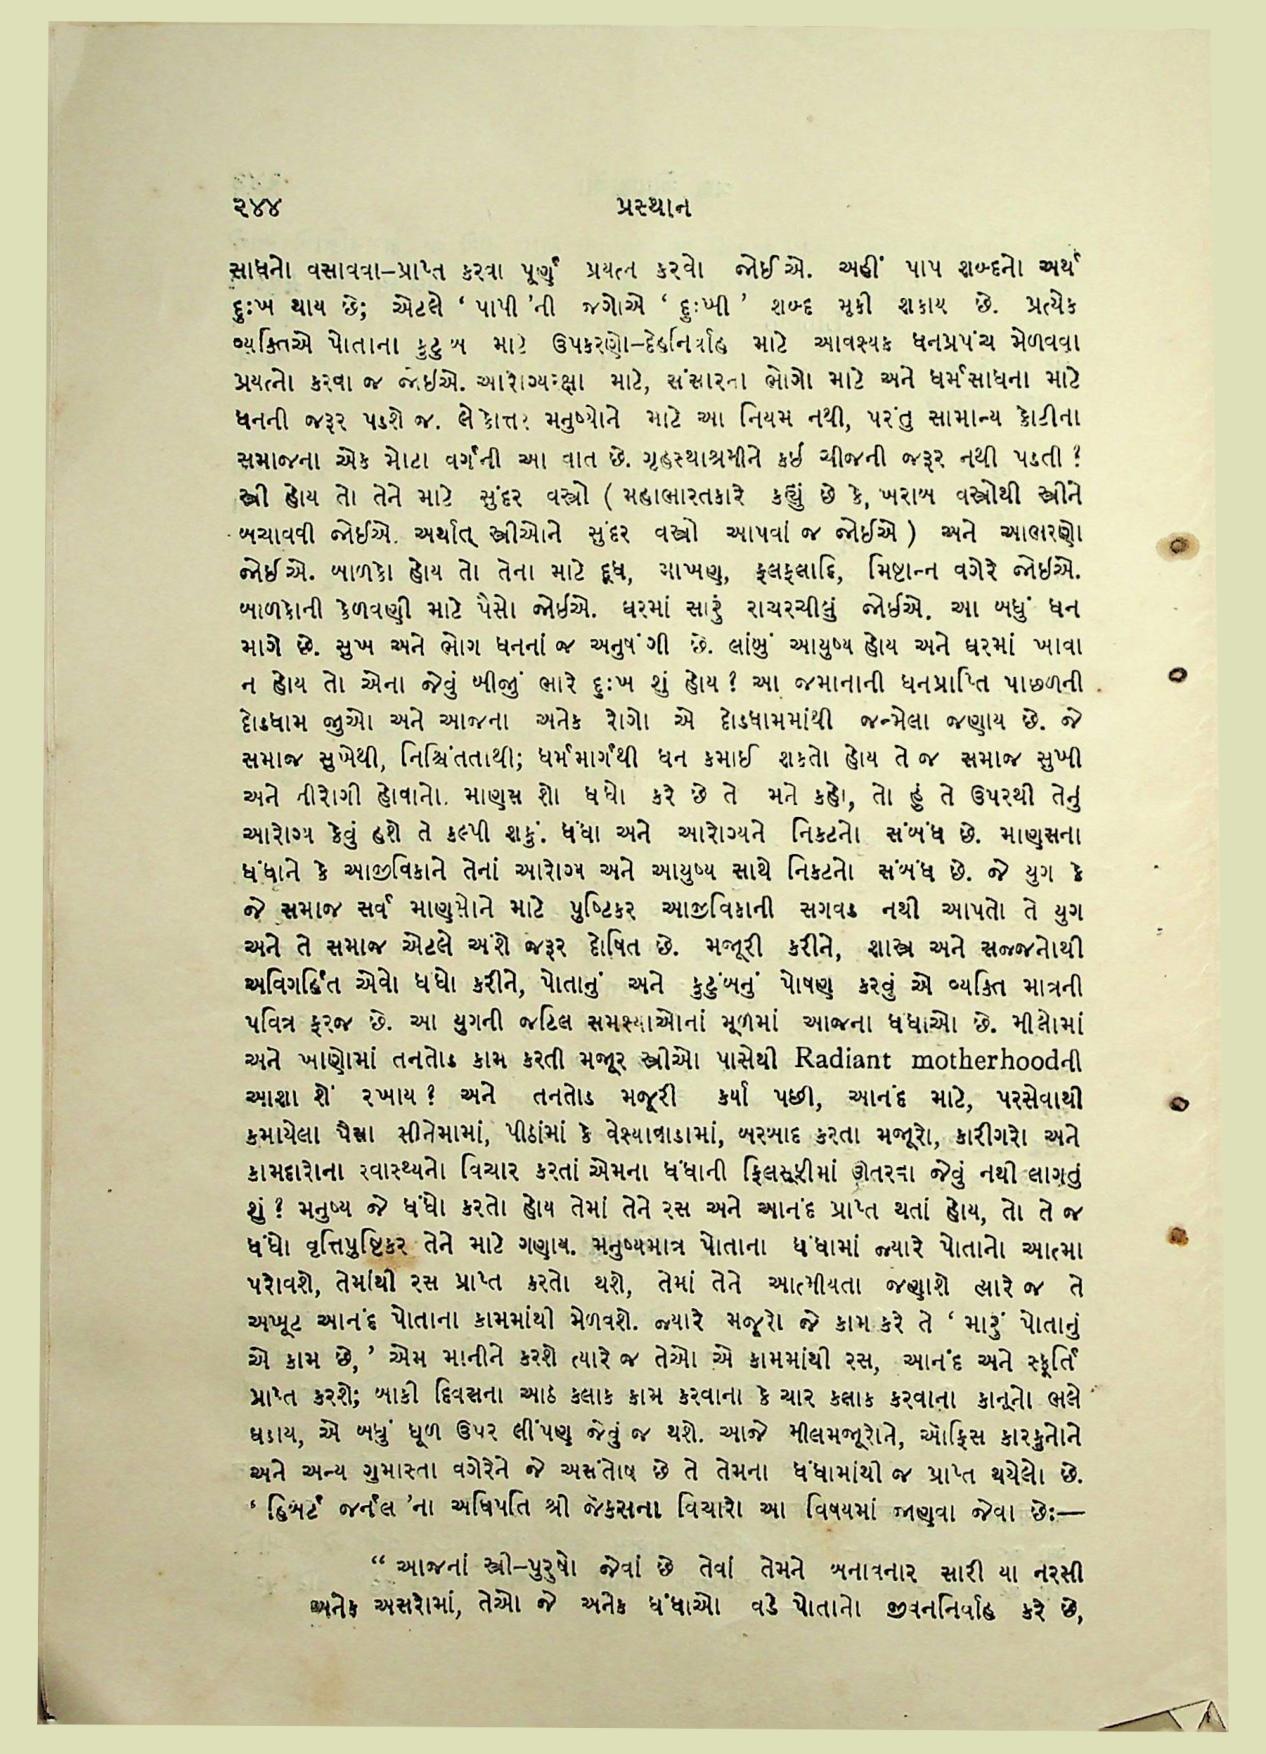 ૨૪૪ પ્રસ્થાન
સાધનો વસાવવા–પ્રાપ્ત કરવા પૂર્ણ પ્રયત્ન કરવો જોઈએ. અહીં પાપ શબ્દનો અર્થ
દુઃખ થાય છે; એટલે ‘ પાપી ’ની જગોએ ‘ દુઃખી ’ શબ્દ મૂકી શકાય છે. પ્રત્યેક
વ્યક્તિએ પોતાના કુટુંબ માટે ઉપકરણો–દેહનિર્વાહ માટે આવશ્યક ધનપ્રપંચ મેળવવા
પ્રયત્નો કરવા જ જોઇએ. આરોગ્યરક્ષા માટે, સંસારના ભોગો માટે અને ધર્મસાધના માટે
ધનની જરૂર પડશે જ. લોકોત્તર મનુષ્યોને માટે આ નિયમ નથી, પરંતુ સામાન્ય કોટીના
સમાજના એક મોટા વર્ગની આ વાત છે. ગૃહસ્થાશ્રમીને કઈ ચીજની જરૂર નથી પડતી ?
સ્ત્રી હોય તો તેને માટે સુંદર વસ્ત્રો ( મહાભારતકારે કહ્યું છે કે, ખરાબ વસ્ત્રોથી સ્ત્રીને
બચાવવી જોઈએ. અર્થાત્ સ્ત્રીઓને સુંદર વસ્ત્રો આપવાં જ જોઈએ ) અને આભરણો
જોઈએ. બાળકો હોય તો તેના માટે દૂધ, માખણ, ફલફલાદિ, મિષ્ટાન્ન વગેરે જોઈએ.
બાળકોની કેળવણી માટે પૈસો જોઈએ. ઘરમાં સારું રાચરચીલું જોઈએ. આ બધું ધન
માગે છે. સુખ અને ભોગ ધનનાં જ અનુષંગી છે. લાંબું આયુષ્ય હોય અને ઘરમાં ખાવા
ન હોય તો એના જેવું બીજું ભારે દુઃખ શું હોય ? આ જમાનાની ધનપ્રાપ્તિ પાછળની
દોડધામ જુઓ અને આજના અનેક રોગો એ દોડધામમાંથી જન્મેલા જણાય છે. જે
સમાજ સુખેથી, નિશ્ચિંતતાથી; ધર્મમાર્ગથી ધન કમાઈ શકતો હોય તે જ સમાજ સુખી
અને નીરોગી હોવાનો. માણસ શો ધંધો કરે છે તે મને કહો, તો હું તે ઉપરથી તેનું
આરોગ્ય કેવું હશે તે કલ્પી શકું. ધંધા અને આરોગ્યને નિકટનો સંબંધ છે. માણસના
ધંધાને કે આજીવિકાને તેનાં આરોગ્ય અને આયુષ્ય સાથે નિકટનો સંબંધ છે. જે યુગ કે
જે સમાજ સર્વ માણસોને માટે પુષ્ટિકર આજીવિકાની સગવડ નથી આપતો તે યુગ
અને તે સમાજ એટલે અંશે જરૂર દોષિત છે. મજૂરી કરીને, શાસ્ત્ર અને સજ્જનોથી
અવિગર્હિત એવો ધંધો કરીને, પોતાનું અને કુટુંબનું પોષણ કરવું એ વ્યક્તિ માત્રની
પવિત્ર ફરજ છે. આ યુગની જટિલ સમસ્યાઓનાં મૂળમાં આજના ધંધાઓ છે. મીલોમાં
અને ખાણોમાં તનતોડ કામ કરતી મજૂર સ્ત્રીઓ પાસેથી Radiant motherhoodની
આશા શેં રખાય ? અને તનતોડ મજૂરી કર્યા પછી, આનંદ માટે, પરસેવાથી
કમાયેલા પૈસા સીનેમામાં, પીઠાંમાં કે વેશ્યાવાડામાં, બરબાદ કરતા મજૂરો, કારીગરો અને
કામદારોના સ્વાસ્થ્યનો વિચાર કરતાં એમના ધંધાની ફિલસૂફીમાં ઊતરવા જેવું નથી લાગતું
શું ? મનુષ્ય જે ધંધો કરતો હોય તેમાં તેને રસ અને આનંદ પ્રાપ્ત થતાં હોય, તો તે જ
ધંધો વૃત્તિપુષ્ટિકર તેને માટે ગણાય. મનુષ્યમાત્ર પોતાના ધંધામાં જ્યારે પોતાનો આત્મા
પરોવશે, તેમાંથી રસ પ્રાપ્ત કરતો થશે, તેમાં તેને આત્મીયતા જણાશે ત્યારે જ તે
અખૂટ આનંદ પોતાના કામમાંથી મેળવશે. જ્યારે મજૂરો જે કામ કરે તે ‘ મારું પોતાનું
એ કામ છે, ’ એમ માનીને કરશે ત્યારે જ તેઓ એ કામમાંથી રસ, આનંદ અને સ્ફૂર્તિ
પ્રાપ્ત કરશે; બાકી દિવસના આઠ કલાક કામ કરવાના કે ચાર કલાક કરવાના કાનૂનો ભલે
ઘડાય, એ બધું ધૂળ ઉપર લીંપણ જેવું જ થશે. આજે મીલમજૂરોને, ઑફિસ કારકુનોને
અને અન્ય ગુમાસ્તા વગેરેને જે અસંતોષ છે તે તેમના ધંધામાંથી જ પ્રાપ્ત થયેલો છે.
‘ હિબર્ટ જર્નલ ’ના અધિપતિ શ્રી જૅક્સના વિચારો આ વિષયમાં જાણવા જેવા છેઃ—
“ આજનાં સ્ત્રી–પુરુષો જેવાં છે તેવાં તેમને બનાવનાર સારી યા નરસી
અનેક અસરોમાં, તેઓ જે અનેક ધંધાઓ વડે પોતાનો જીવનનિર્વાહ કરે છે,